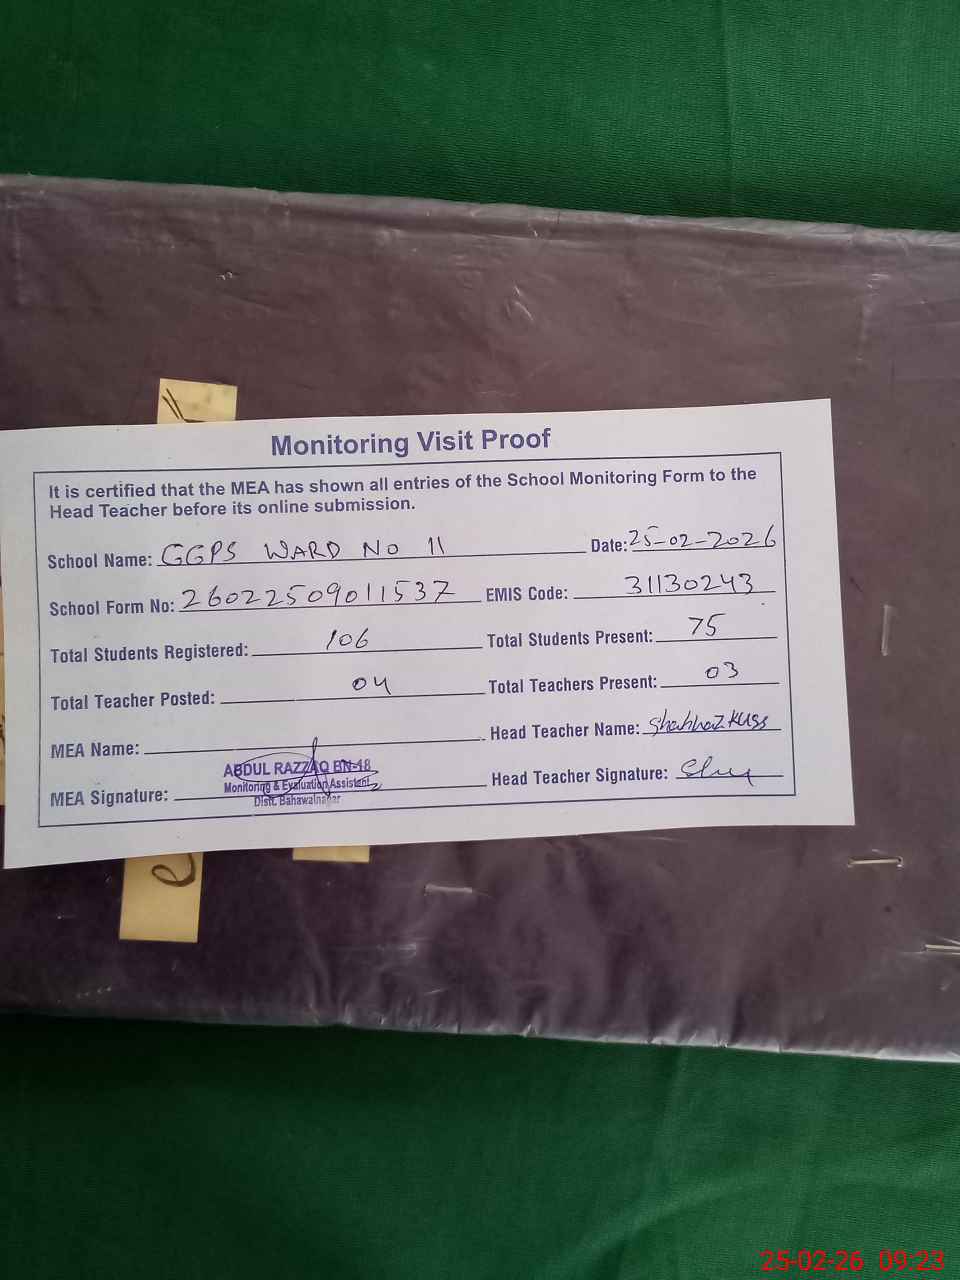 Monitoring Visit Proof
It is certified that the MEA has shown all entries of the School Monitoring Form to the
Head Teacher before its online submission.
School Name: GGPS WARD No 11 Date: 25-02-2026
School Form No: 26022509011537 EMIS Code: 31130243
Total Students Registered: 106 Total Students Present: 75
Total Teacher Posted: 04 Total Teachers Present: 03
MEA Name: Head Teacher Name: Shahnaz
ABDUL RAZZAQ BN-18
Monitoring & Evaluation Assistant
Distt. Bahawalnagar
MEA Signature: Head Teacher Signature:
25-02-26 09:23